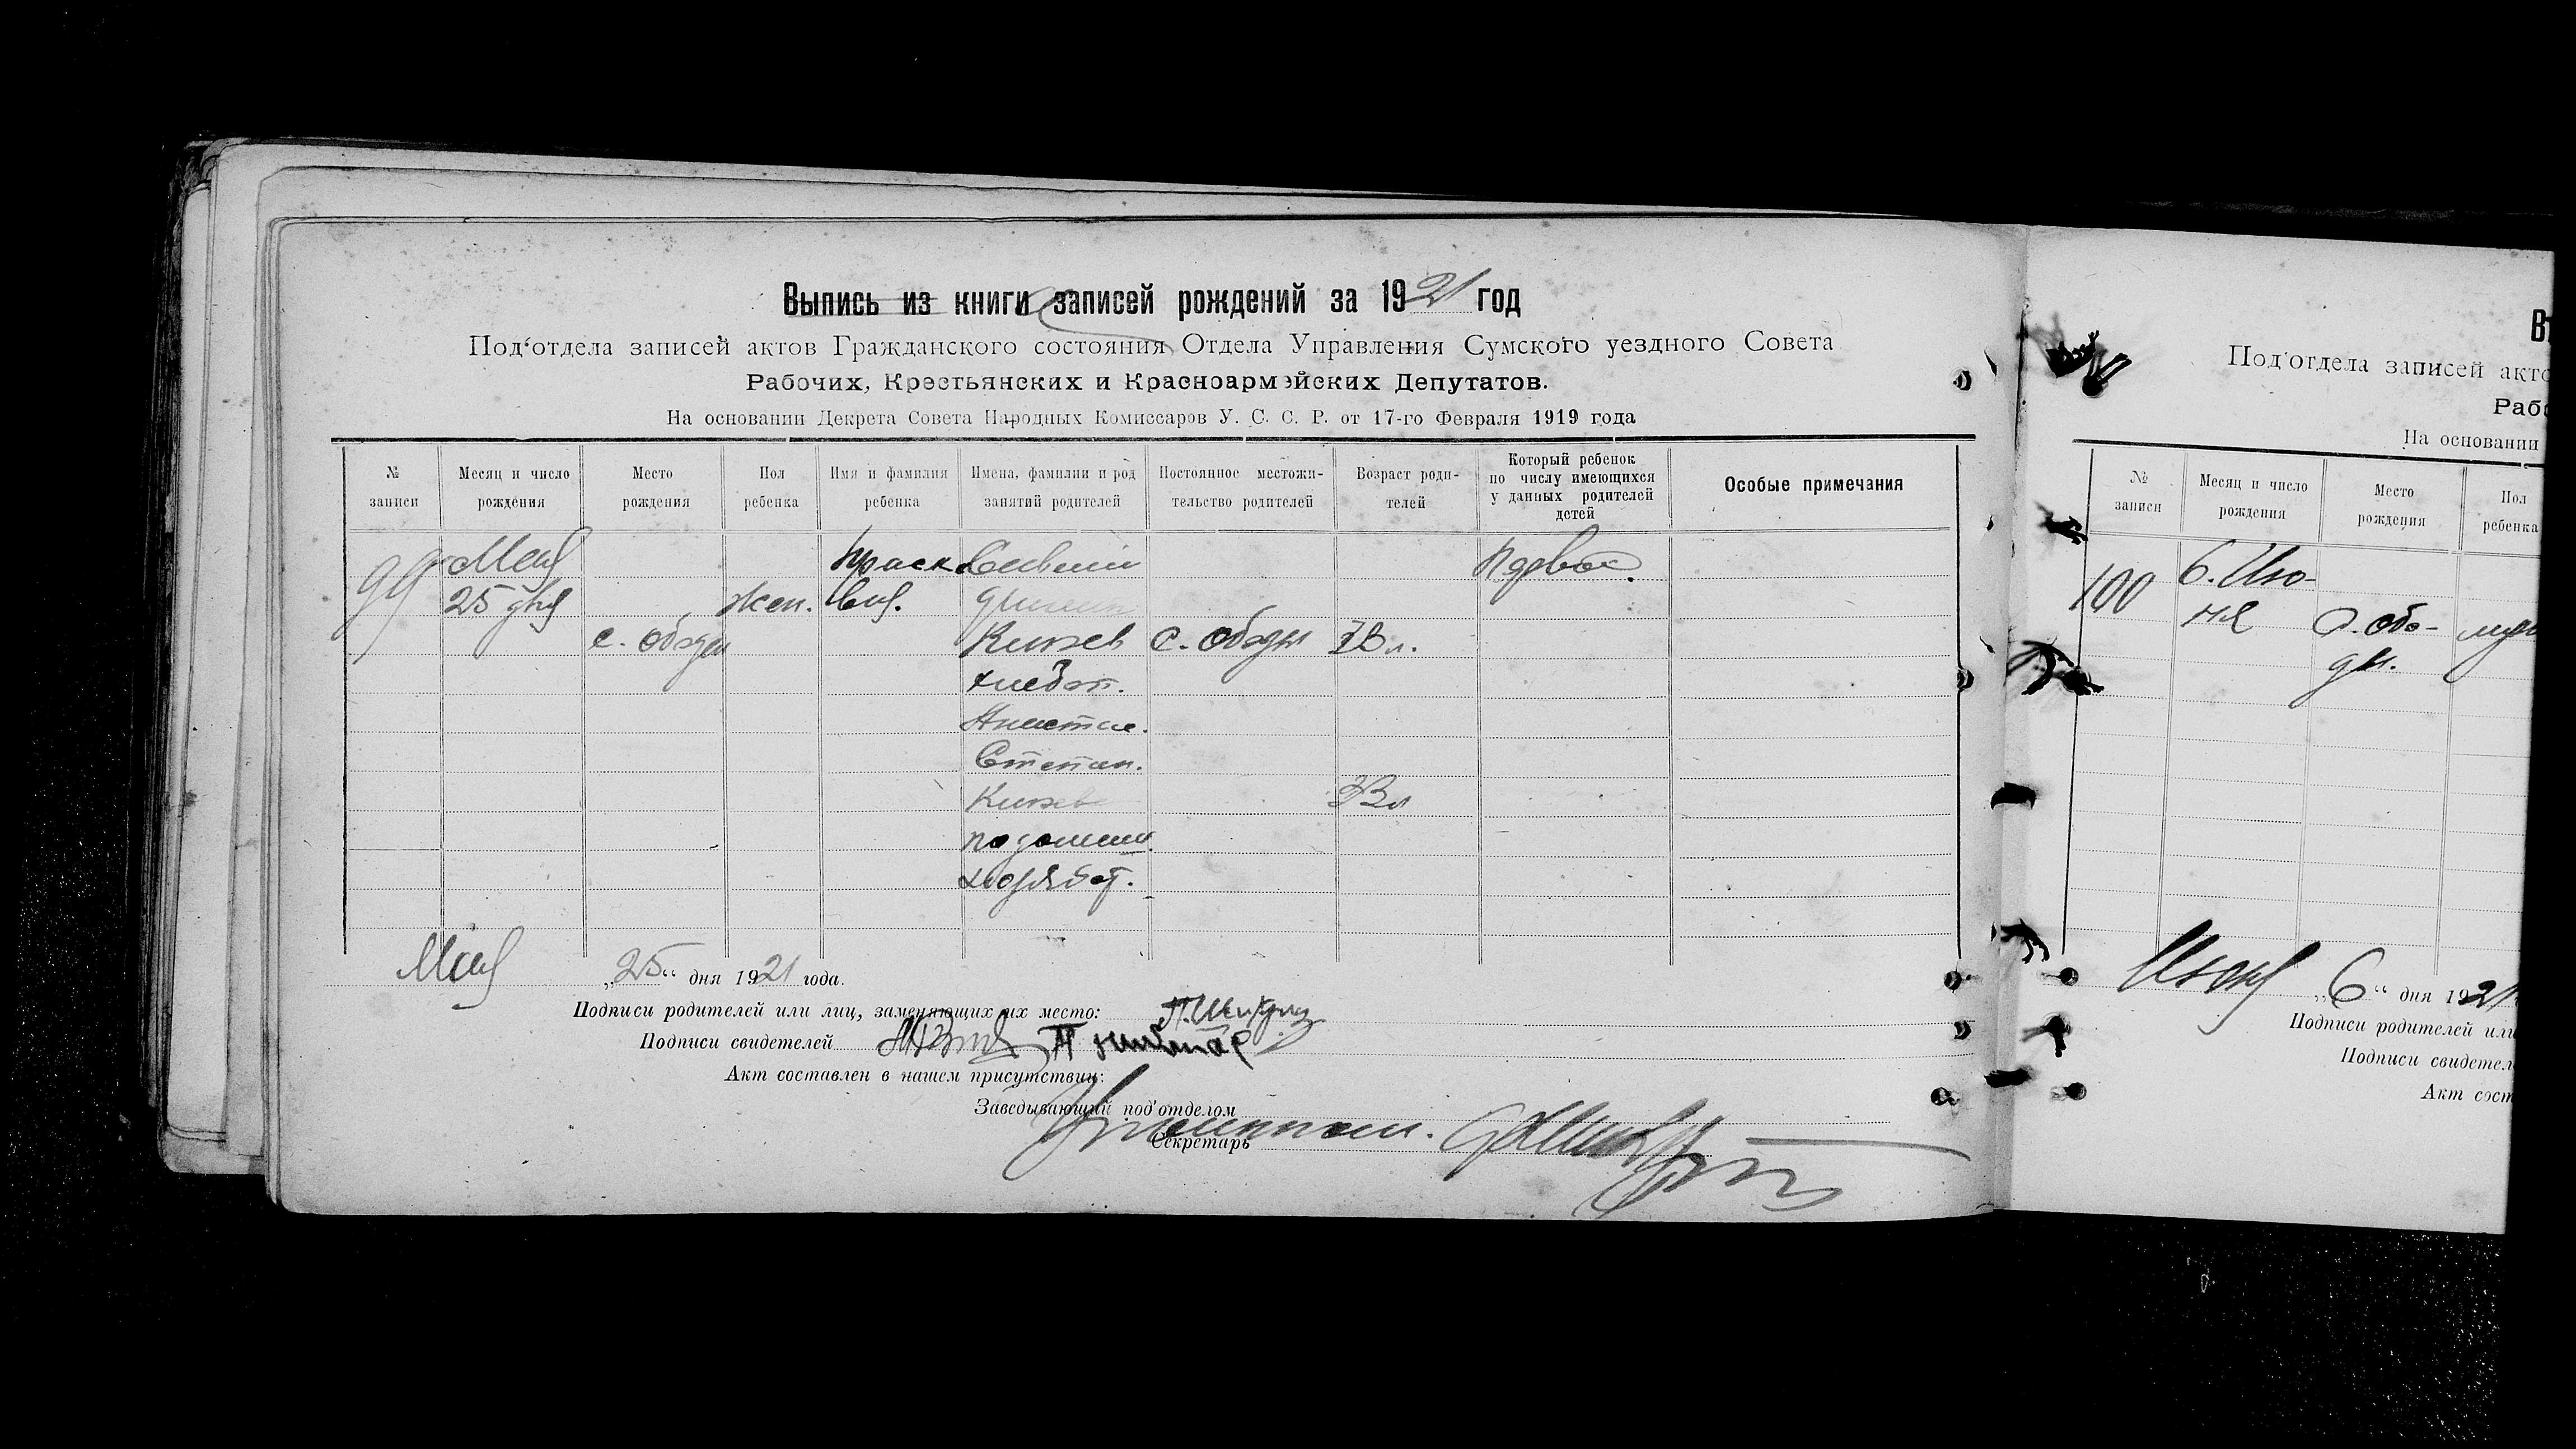 Выпись из книги записей рождений за 1921 год
Под‘отдела записей актов Гражданского состояния Отдела Управления Сумского уездного Совета
Рабочих, Крестьянских и Красноармейских Депутатов.
На основании Декрета Совета Народных Комиссаров У. С. С. Р. от 17-го Февраля 1919 года
№ записи
Месяц и число рождения
Место рождения
Пол ребенка
Имя и фамилия ребенка
Имена, фамилии и род занятий родителей
Постоянное местожительство родителей
Возраст родителей
Который ребенок по числу имеющихся у данных родителей детей
Особые примечания
99
Мая
25 дня
с. Ободы
жен.
Праско
вия.
Князев
хлебоп.
Анастас.
Степан.
Князев
по домашн.
с. Ободы
Мая „25“ дня 1921 года.
Подписи родителей или лиц, заменяющих их место:
Подписи свидетелей
Акт составлен в нашем присутствии:
Заведывающий под‘отделом
Секретарь
Под‘отдела записей акто
Рабо
На основании
№ записи
Месяц и число рождения
Место рождения
Пол ребенка
100
6. Ию-
ня
с. Обо-
ды.
Июня „6“ дня 1921
Подписи родителей или
Подписи свидетел
Акт сост